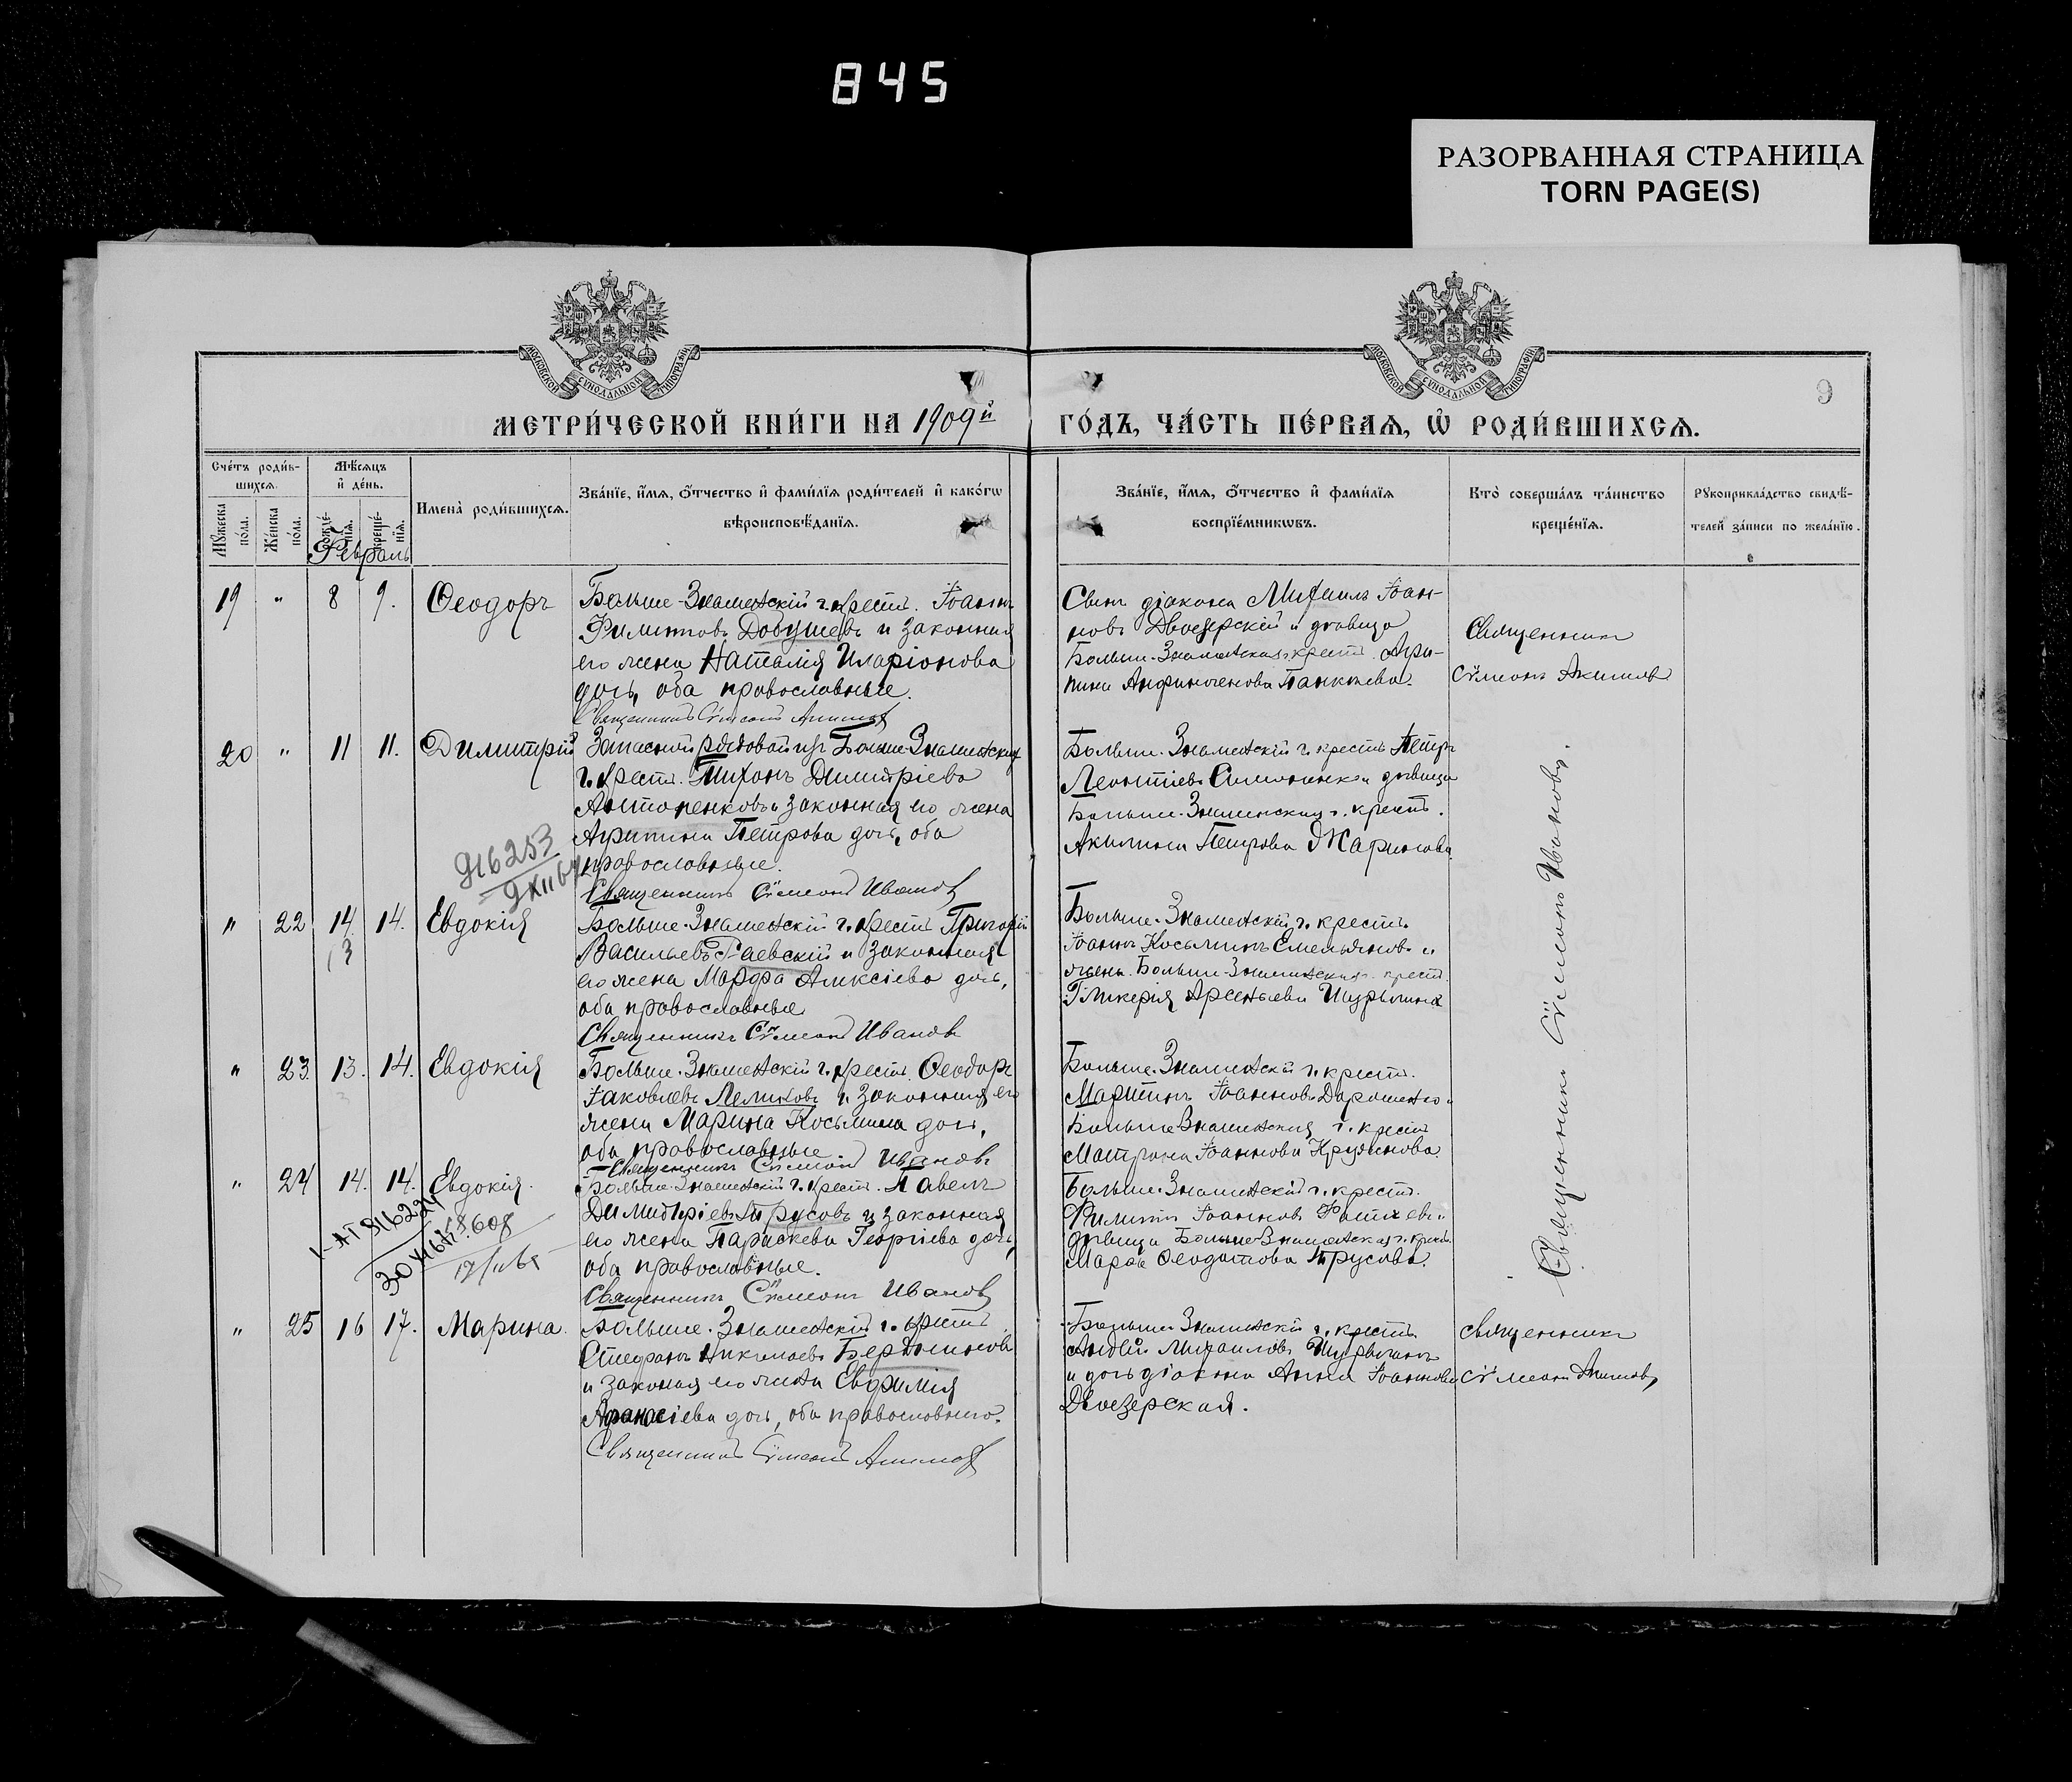 845
РАЗОРВАННАЯ СТРАНИЦА
TORN PAGE(S)
МОСКОВСКОЙ СѴНОДАЛЬНОЙ ТИПОГРАФІИ
МОСКОВСКОЙ СѴНОДАЛЬНОЙ ТИПОГРАФІИ
9
МЕТРИ́ЧЕСКОЙ КНИ́ГИ НА 1909й ГО́ДЪ, ЧА́СТЬ ПЕ́РВАѦ, Ѡ РОДИ́ВШИХСѦ.
Сче́тъ роди́в-
шихсѧ.
Мѣ́сѧцъ
и҆ де́нь.
Мꙋ́жеска
по́ла.
Же́нска
по́ла.
рожде́-
нїѧ.
креще́-
нїѧ.
Имена̀ роди́вшихсѧ.
Зва́нїе, и҆́мѧ, ѻ҆́тчество и҆ фами́лїѧ роди́телей и҆ како́гѡ
вѣроисповѣ́данїѧ.
Зва́нїе, и҆́мѧ, ѻ҆́тчество и҆ фами́лїѧ
воспрїе́мникѡвъ.
Кто̀ соверша́лъ та́инство
креще́нїѧ.
Рꙋкоприкла́дство свидѣ́-
телей за́писи по жела́нїю.
Февраль
19 " 8 9. Ѳеодоръ
Больше-Знаменскій г. крест. Іоаннъ
Филиповъ Добушевъ и законная
его жена Наталія Иларіонова
дочь, оба православные.
Священникъ Сѵмеонъ Акимовъ
Сынъ діакона Михаилъ Іоан-
новъ Двоезерскій и дѣвица
Больше-Знаменская г. крест. Агри-
пина Панкѣева.
Священникъ
Сѵмеонъ Акимовъ
20 " 11 11. Димитрій
Запасной рядовой изъ Больше-Знаменскихъ
г. крест. Тихонъ Димитріевъ
Антоненковъ и законная его жена
Агрипина Петрова дочь, оба
православные.
Священникъ Сѵмеонъ Ивановъ
Больше-Знаменскій г. крестъ. Петръ
Леонтіевъ и дѣвица
Больше-Знаменская г. крестъ.
Акилина Петрова Маринова.
916253
" 22 14. 14. Евдокія
13
Больше-Знаменскій г. крест. Григорій
Васильевъ Раевскій и законная
его жена Марѳа Алексіева дочь,
оба православные
Священникъ Сѵмеонъ Ивановъ
Больше-Знаменскій г. крестъ.
Іоаннъ Косьминъ Емельяновъ и
жена Больше-Знаменская крест.
Гликерія Арсеньева Шурыгина
Священникъ Сѵмеонъ Ивановъ.
" 23. 13. 14. Евдокія
Больше-Знаменскій г. крест. Ѳеодоръ
Іаковлевъ Лелиховъ и законная его
жена Марина Косьмина дочь,
оба православные.
Священникъ Сѵмеонъ Ивановъ
Больше-Знаменскій г. крест.
Мартинъ Іоанновъ Дорошенко и
Больше Знаменская г. крест.
Матрона Іоаннова Круткова.
" 24 14. 14. Евдокія.
Больше-Знаменскій г. крест. Павелъ
Димитріевъ Трусовъ и законная
его жена Параскева Георгіева дочь,
оба православные.
Священникъ Сѵмеонъ Ивановъ
Больше-Знаменскій г. крест.
Филиппъ Іоанновъ
дѣвица Больше-Знаменская г. крест.
Марѳа Ѳеодотова Трусова.
" 25 16 17. Марина.
Больше-Знаменскій г. крест.
Стефанъ Николаевъ Бердниковъ
и законная его жена Евфимія
Аѳанасіева дочь, оба православнаго.
Священникъ Сѵмеонъ Акимовъ
Больше-Знаменскій г. крестъ.
Андрей Михаиловъ Шурыгинъ
и дочь діакона Анна Іоаннова
Двоезерская.
священникъ
Сѵмеонъ Акимовъ